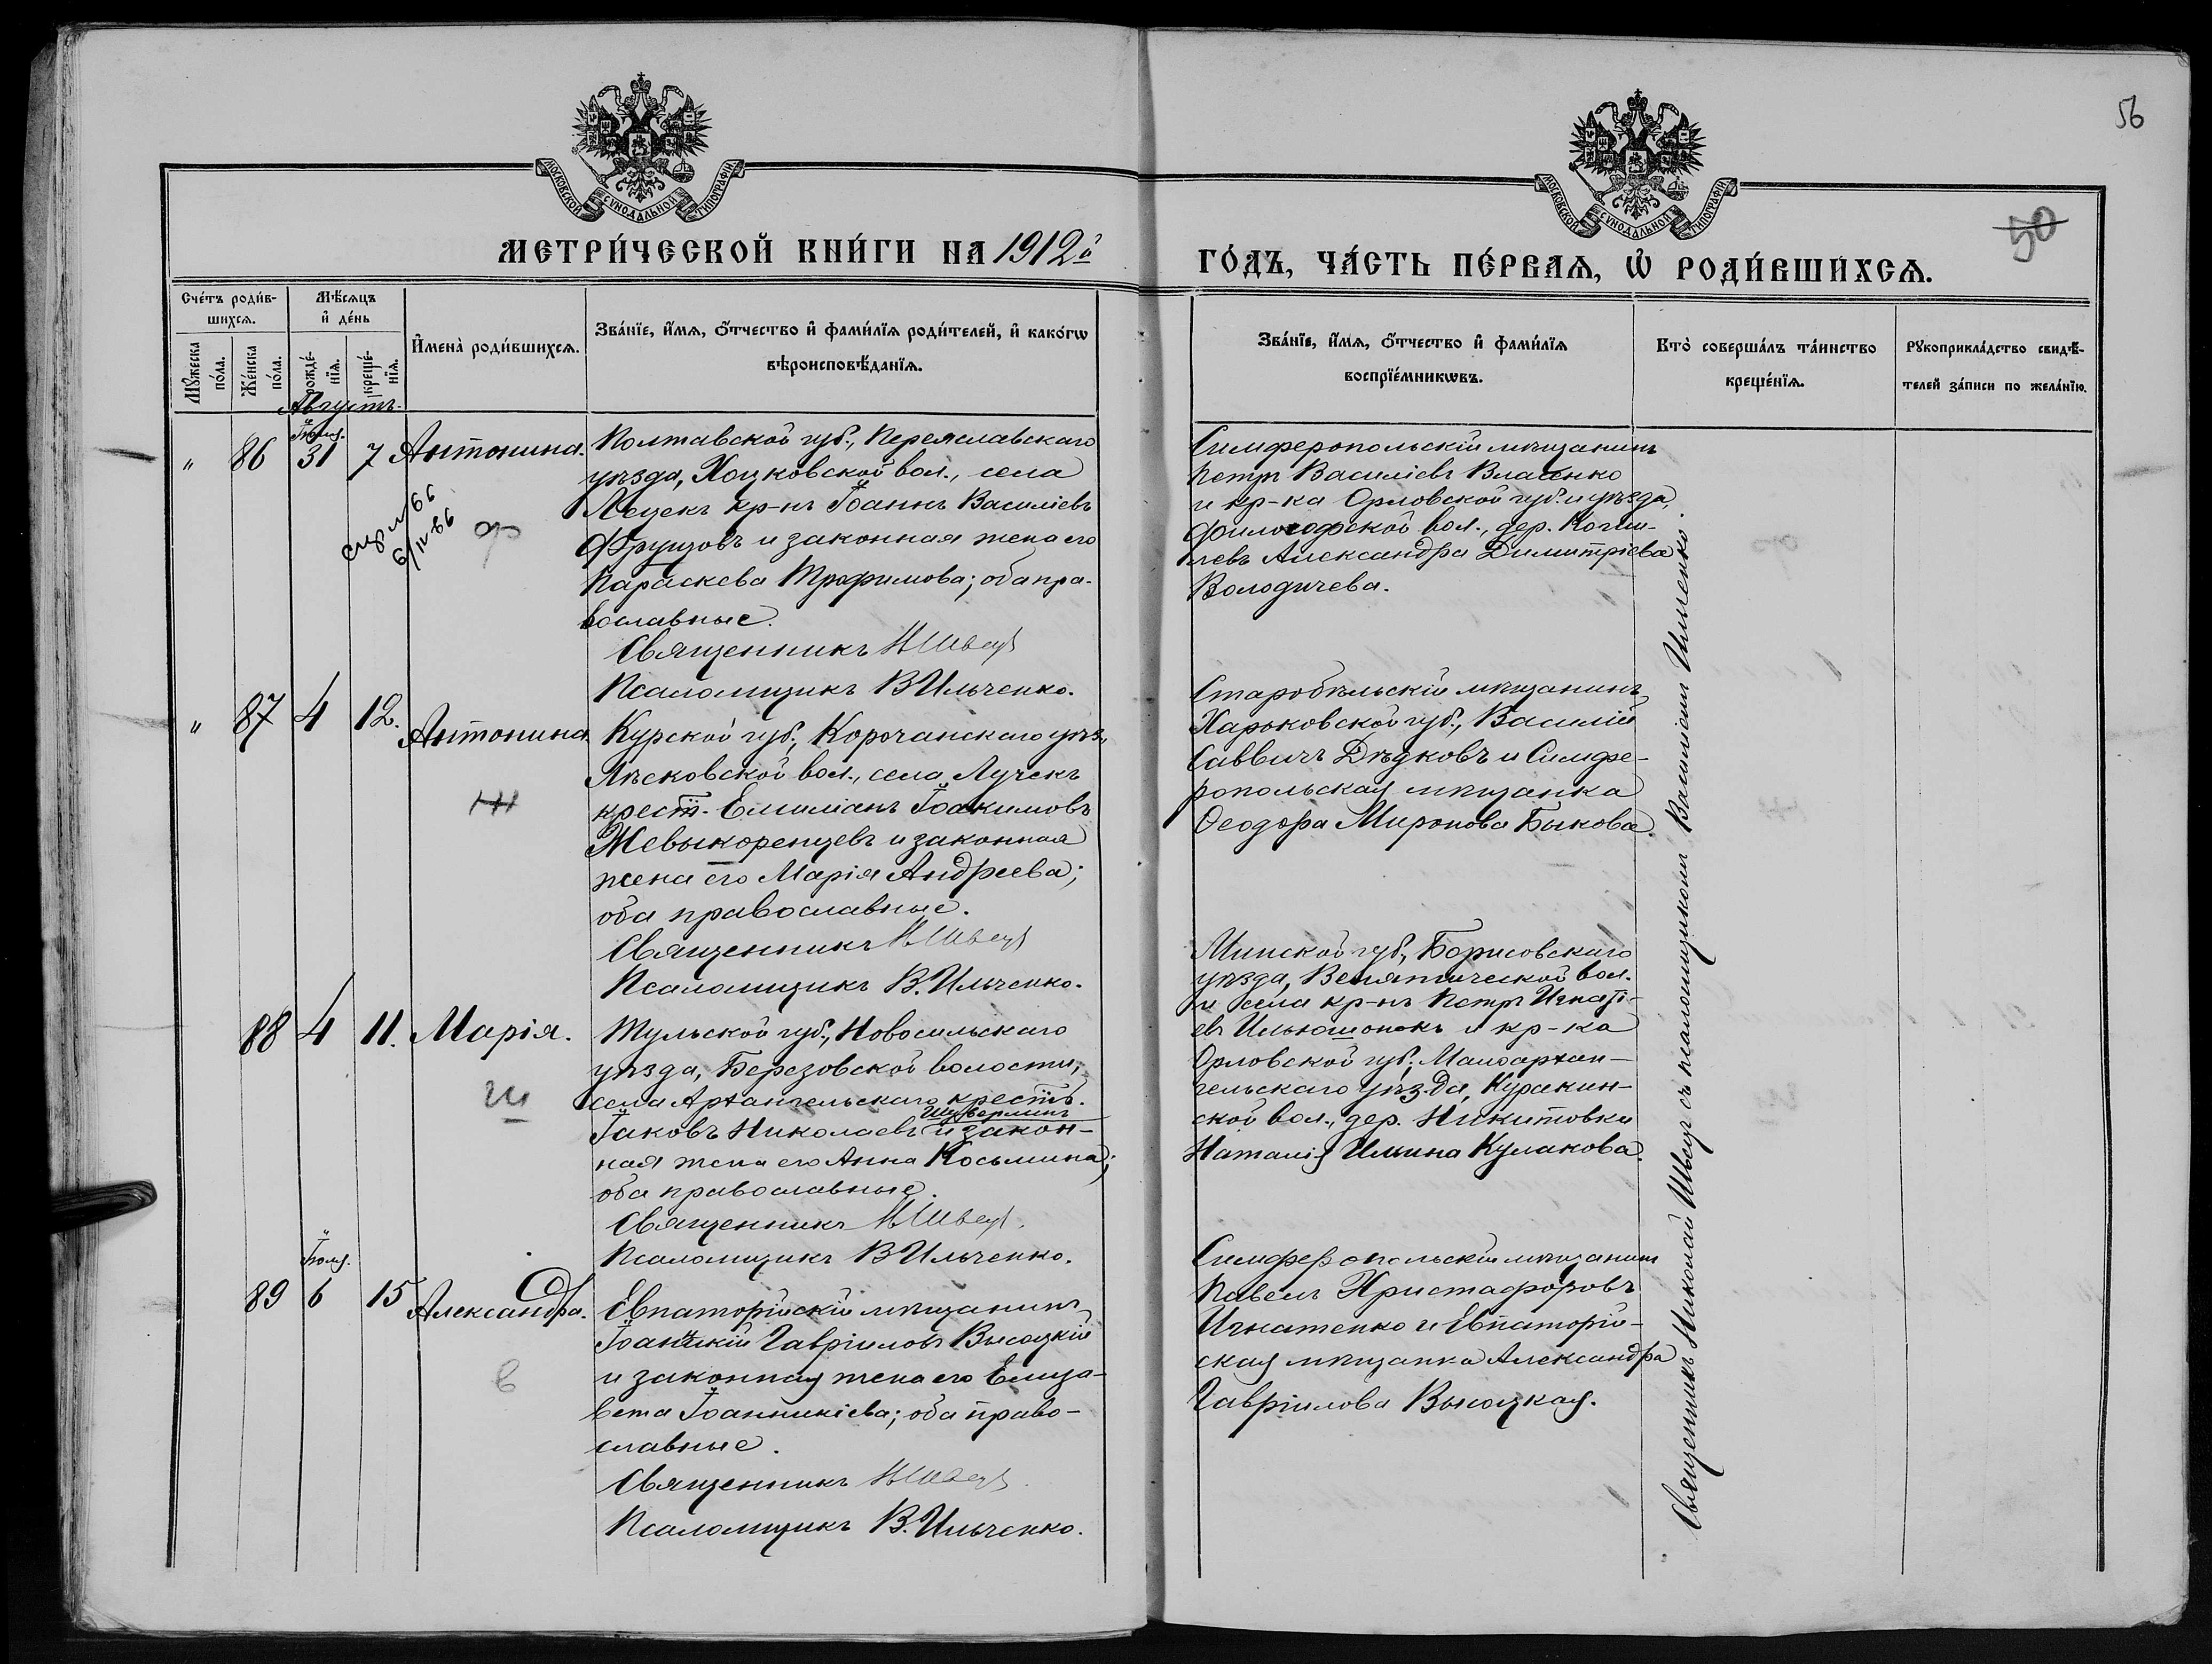 56
50
МОСКОВСКОЙ СѴНОДАЛЬНОЙ ТИПОГРАФІИ
МОСКОВСКОЙ СѴНОДАЛЬНОЙ ТИПОГРАФІИ
МЕТРИ́ЧЕСКОЙ КНИ́ГИ НА 1912й
ГО́ДЪ, ЧА́СТЬ ПЕ́РВАѦ, Ѡ҆ РОДИ́ВШИХСѦ.
Сче́тъ роди́в-
шихсѧ.
Мꙋ́жеска по́ла.
Же́нска по́ла.
Мѣ́сѧцъ
и҆ де́нь
рожде́-
нїѧ.
креще́-
нїѧ.
И҆мена̀ роди́вшихсѧ.
Зва́нїе, и҆́мѧ, ѻ҆́тчество и҆ фами́лїѧ роди́телей, и҆ како́гѡ
вѣроисповѣ́данїѧ.
Зва́нїе, и҆́мѧ, ѻ҆́тчество и҆ фами́лїѧ
воспрїе́мникѡвъ.
Кто̀ соверша́лъ та́инство
креще́нїѧ.
Рꙋкоприкла́дство свидѣ́-
телей за́писи по жела́нїю.
Августъ.
Іюля.
" 86 31 7 Антонина.
Полтавской губ., Переяславскаго
уѣзда, Хоцковской вол., села
Лецекъ кр-нъ Іоаннъ Василіевъ
Фрунзовъ и законная жена его
Параскева Трофимова; оба пра-
вославные.
Священникъ Н Швецъ
Псаломщикъ В Ильченко.
ф
6/IV-86
Симферопольскій мѣщанинъ
Петръ Василіевъ Власенко
и кр-ка Орловской губ. и уѣзда,
Философской вол., дер.
Александра Димитріева
Володичева.
" 87 4 12. Антонина
Курской губ., Корочанскаго уѣз.,
Лѣсковской вол., села Лучекъ
крест. Емиліанъ Іоакимовъ
Жевыкоренцевъ и законная
жена его Марія Андреева;
оба православные.
Священникъ Н Швецъ
Псаломщикъ В. Ильченко.
Ж
Старобѣльскій мѣщанинъ
Харьковской губ., Василій
Саввичъ Дѣдковъ и Симфе-
ропольская мѣщанка
Ѳеодора Миронова Быкова.
88 4 11. Марія.
Тульской губ., Новосильскаго
уѣзда, Березовской волости,
села Архангельскаго крестъ.
Шуверлинъ
Іаковъ Николаевъ и закон-
ная жена его Анна Косьмина;
оба православные.
Священникъ Н Швецъ.
Псаломщикъ В Ильченко.
ш
Минской губ., Борисовскаго
уѣзда, Велятической вол.
и села кр-нъ Петръ Игнаті-
евъ Ильюшонокъ и кр-ка
Орловской губ., Малоархан-
гельскаго уѣзда, Куракин-
ской вол., дер. Никитовки
Наталія Ильина Кулакова.
Іюля.
89 6 15 Александра.
Евпаторійскій мѣщанинъ
Іоанникій Гавріиловъ Высоцкій
и законная жена его Елиза-
вета Іоанникіева; оба право-
славные.
Священникъ Н Швецъ.
Псаломщикъ В. Ильченко.
в
Симферопольскій мѣщанинъ
Павелъ Христофоровъ
Игнатенко и Евпаторій-
ская мѣщанка Александра
Гавріилова Высоцкая.
Священникъ Николай Швецъ съ псаломщикомъ Василіемъ Ильченко.